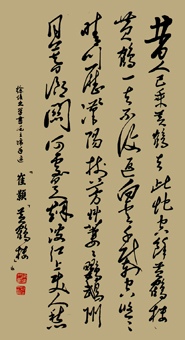 昔人已乘黃鶴去此地空餘黃鶴樓
黃鶴一去不復返白雲千載空悠悠
晴川歷歷漢陽樹芳草萋萋鸚鵡洲
日暮鄉關何處是煙波江上使人愁
崔顥黃鶴樓